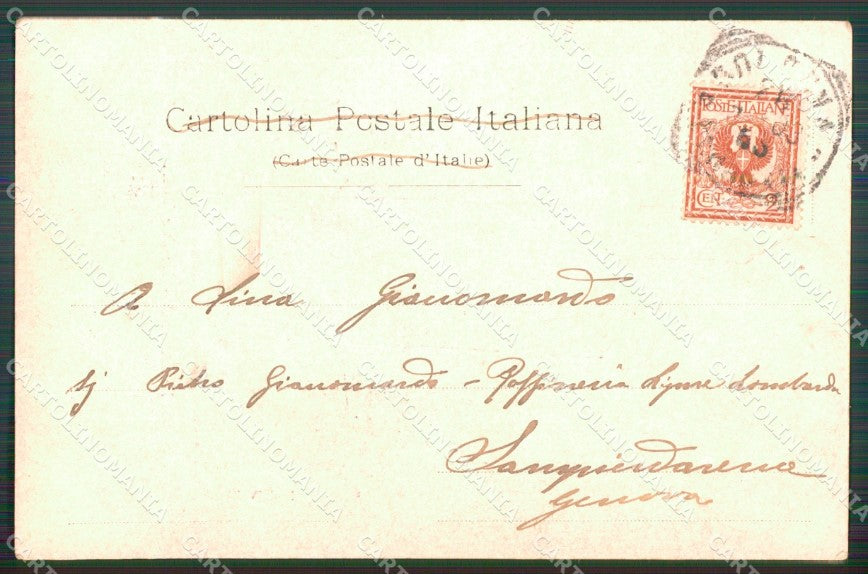 Cartolina Postale Italiana
(Carte Postale d'Italie)
POSTE ITALIANE
CENT 2
A Lina Gianomardo
Pietro Gianomardo - Raffineria Ligure Lombarda
Sampierdarena
Genova
CARTOLINOMANIA